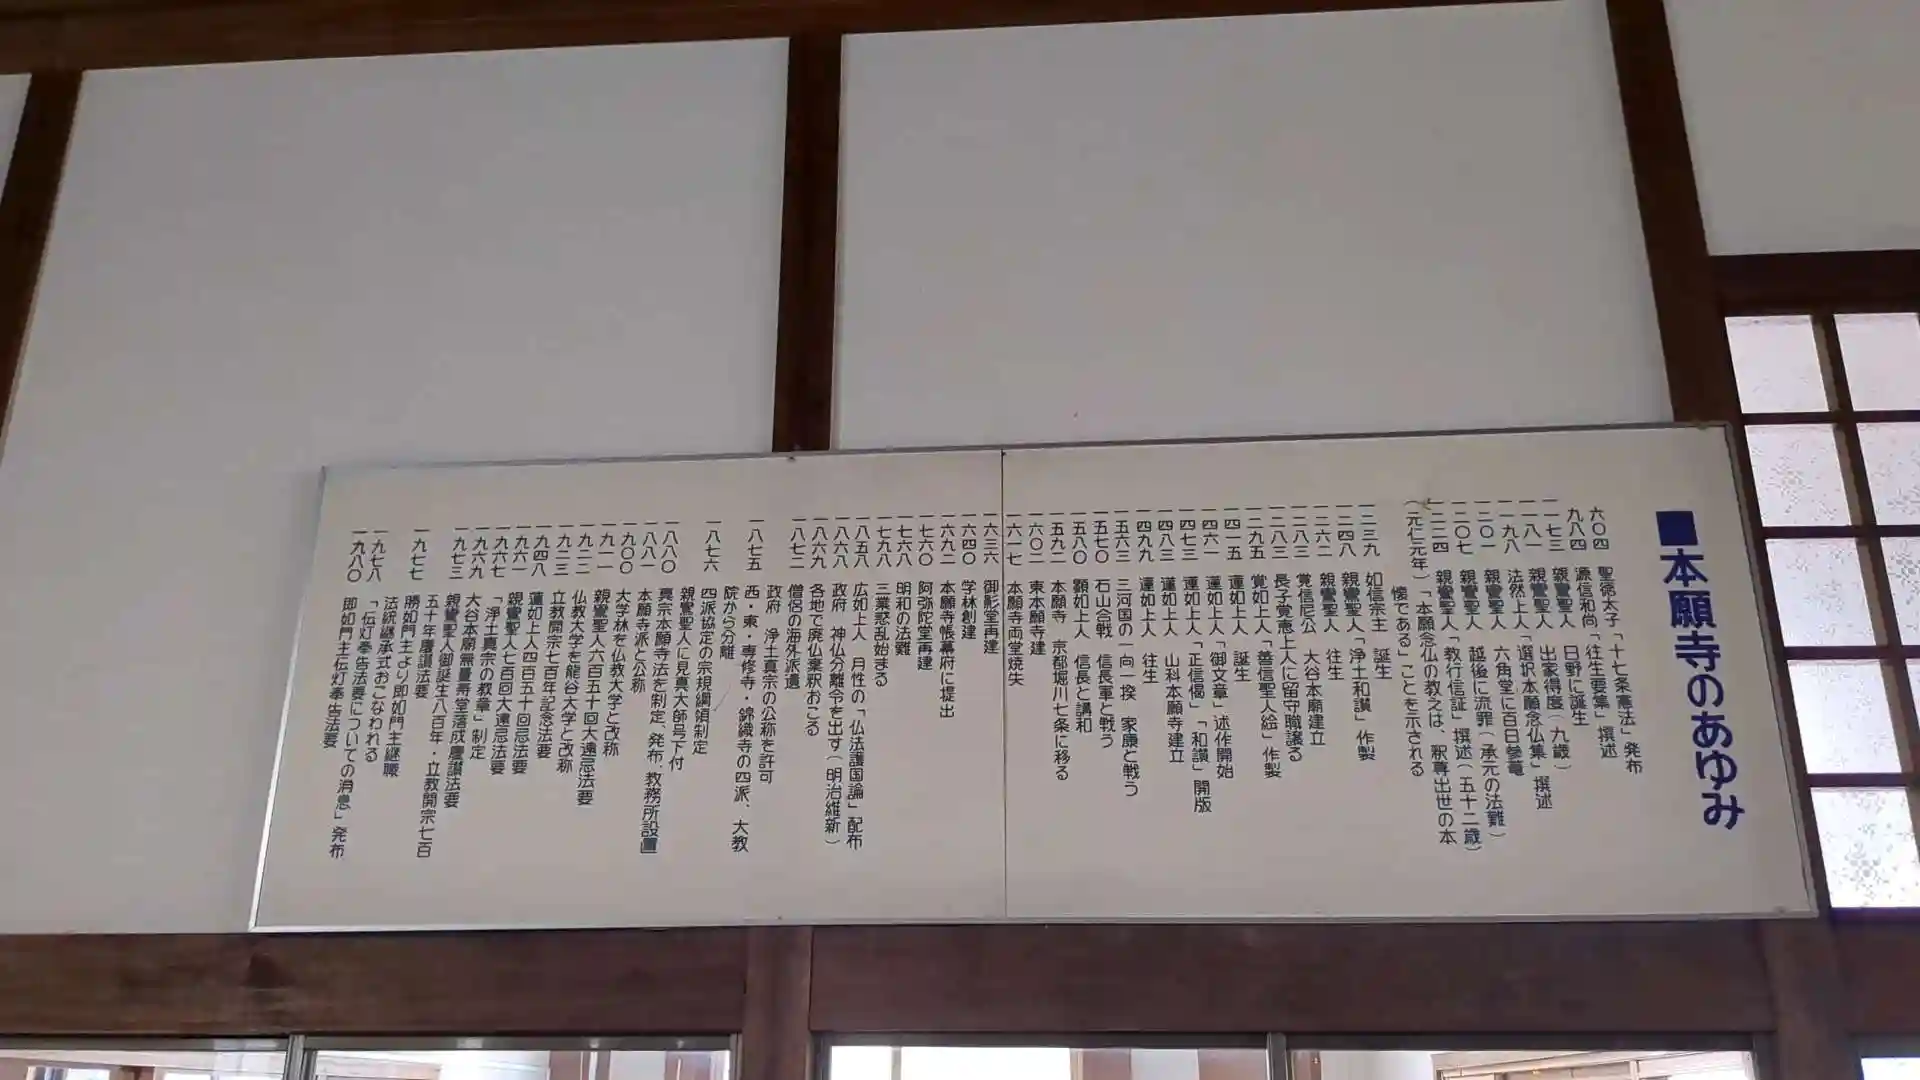 ■本願寺のあゆみ
六〇四 聖徳太子「十七条憲法」発布
九八四 源信和尚「往生要集」撰述
一一七三 親鸞聖人 日野に誕生
一一八一 親鸞聖人 出家得度(九歳)
一一九八 法然上人「選択本願念仏集」撰述
一二〇一 親鸞聖人 六角堂に百日参篭
一二〇七 親鸞聖人 越後に流罪(承元の法難)
一二二四 親鸞聖人「教行信証」撰述(五十二歳)
(元仁元年)「本願念仏の教えは、釈尊出世の本
懐である」ことを示される
一二三九 如信宗主 誕生
一二四八 親鸞聖人「浄土和讃」作製
一二六二 親鸞聖人 往生
覚信尼公 大谷本廟建立
一二八三 長子覚恵上人に留守職譲る
一二九五 覚如上人「善信聖人絵」作製
一四一五 蓮如上人 誕生
一四六一 蓮如上人「御文章」述作開始
一四七三 蓮如上人「正信偈」「和讃」開版
一四八三 蓮如上人 山科本願寺建立
一四九九 蓮如上人 往生
一五六三 三河国の一向一揆 家康と戦う
一五七〇 石山合戦 信長軍と戦う
一五八〇 顕如上人 信長と講和
一五九一 本願寺 京都堀川七条に移る
一六〇二 東本願寺建
一六一七 本願寺両堂焼失
一六三六 御影堂再建
一六四〇 学林創建
一六九二 本願寺帳幕府に提出
一七六〇 阿弥陀堂再建
一七六八 明和の法難
一七九八 三業惑乱始まる
一八五八 広如上人 月性の「仏法護国論」配布
一八六八 政府 神仏分離令を出す(明治維新)
一八六九 各地で廃仏棄釈おこる
一八七二 僧侶の海外派遣
政府 浄土真宗の公称を許可
一八七五 西・東・専修寺・錦織寺の四派、大教
院から分離
一八七六 四派協定の宗規綱領制定
親鸞聖人に見真大師号下付
一八八〇 真宗本願寺法を制定、発布、教務所設置
一八八一 本願寺派と公称
一九〇〇 大学林を仏教大学と改称
一九一一 親鸞聖人六百五十回大遠忌法要
一九二二 仏教大学を龍谷大学と改称
一九二三 立教開宗七百年記念法要
一九四八 蓮如上人四百五十回忌法要
一九六一 親鸞聖人七百回大遠忌法要
一九六七 「浄土真宗の教章」制定
一九六九 大谷本廟無量寿堂落成慶讃法要
一九七三 親鸞聖人御誕生八百年・立教開宗七百
五十年慶讃法要
一九七七 勝如門主より即如門主継職
法統継承式おこなわれる
一九七八 「伝灯奉告法要についての消息」発布
一九八〇 即如門主伝灯奉告法要